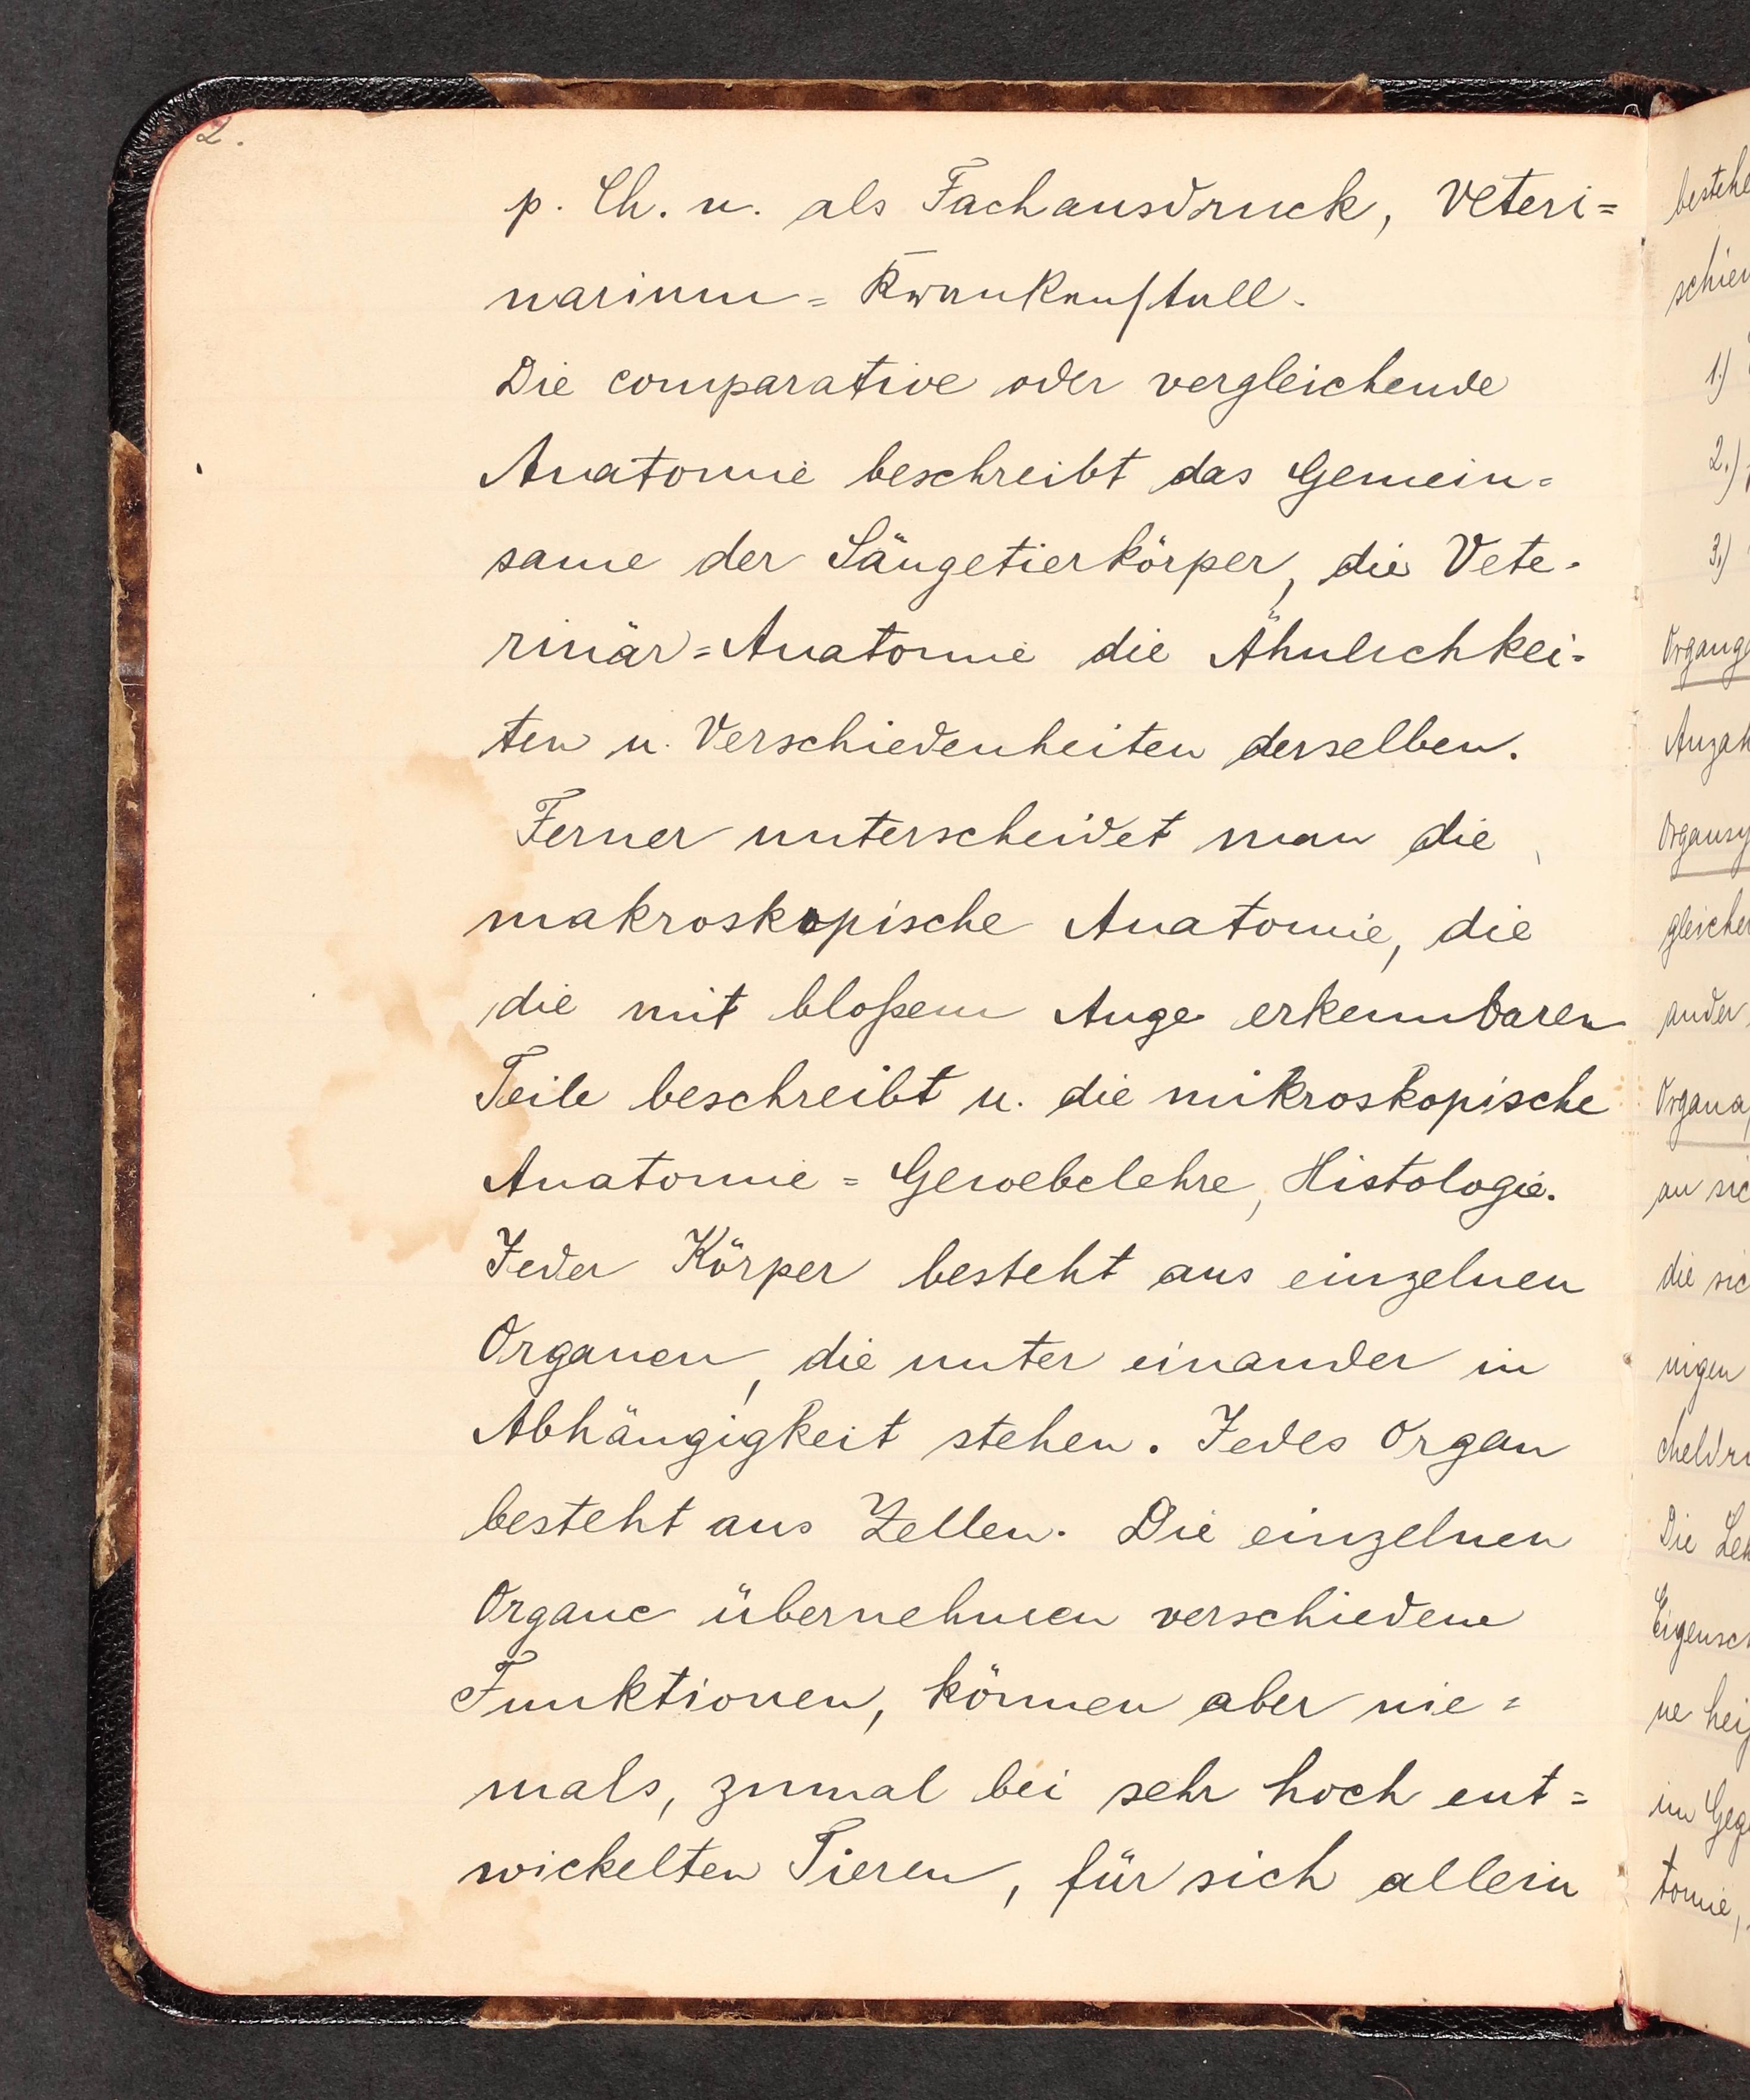 2.
p. Ch. u. als Fachausdruck, Veteri=
narium = Krankenstall.
Die comparative oder vergleichende
Anatomie beschreibt das Gemein=
same der Säugetierkörper, die Vete=
rinär=Anatomie die Ähnlichkei=
ten u. Verschiedenheiten derselben.
Ferner unterscheidet man die
makroskopische Anatomie, die
die mit bloßem Auge erkennbaren
Teile beschreibt u. die mikroskopische
Anatomie = Gewebelehre, Histologie.
Jeder Körper besteht aus einzelnen
Organen, die unter einander in
Abhängigkeit stehen. Jedes Organ
besteht aus Zellen. Die einzelnen
Organe übernehmen verschiedene
Funktionen, können aber nie=
mals, zumal bei sehr hoch ent=
wickelten Tieren, für sich allein
1.)
2.)
3.)
gleicher
an sic
die sic
nigen
Die Leh
Eigensch
im Geg
tomie,